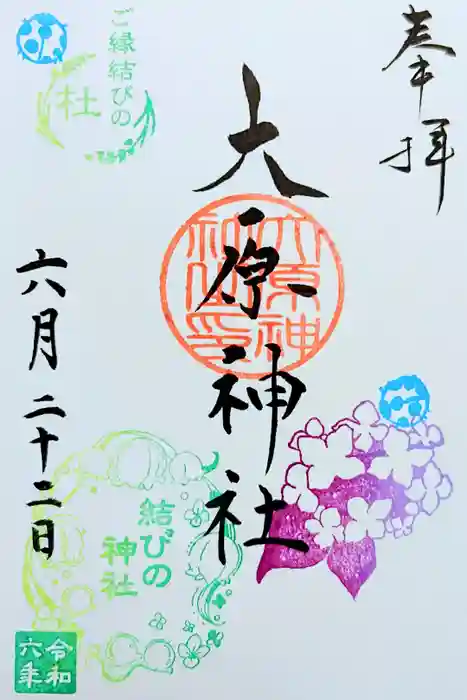 奉拝
大原神社
大原神社印
ご縁結びの
杜
結びの
神社
六月二十二日
令和
六年